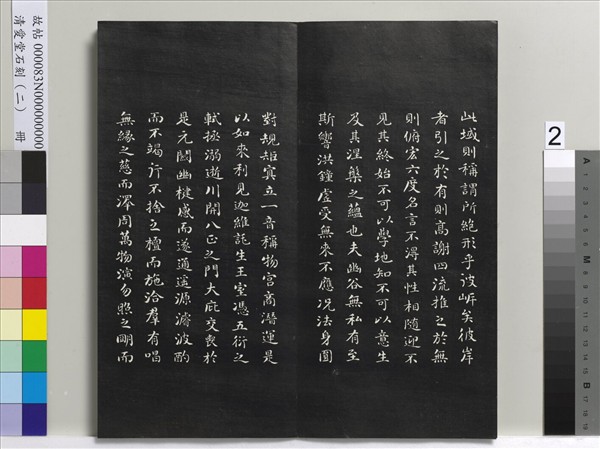 此域則稱謂所絕形乎彼岸矣彼岸
者引之於有則高謝四流推之於無
則俯宏六度名言不得其性相隨迎不
見其終始不可以學地知不可以意生
及其涅槃之蘊也夫幽谷無私有至
斯響洪鐘虛受無來不應况法身圓
對規矩冥立一音稱物宮商潛運是
以如來利見迦維託生王室憑五衍之
軾拯溺逝川開八正之門大庇交喪於
是元關幽楗感而遂通遙源濬波酌
而不竭行不捨之檀而施洽羣有唱
無緣之慈而澤周萬物演勿照之朙而
故帖 000083N000000000
清愛堂石刻（二） 冊
2
A
M
B